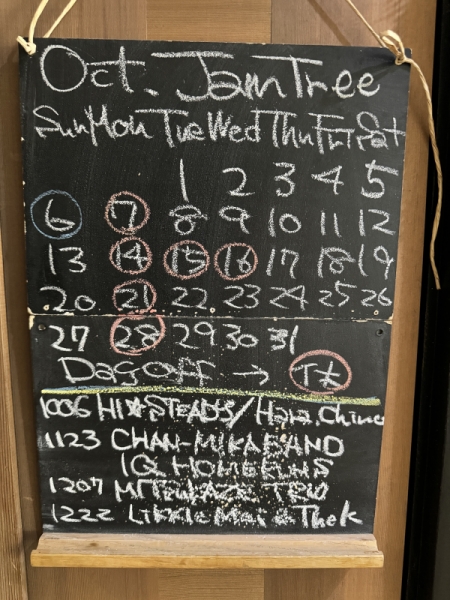 Oct. Jam Tree
Sun Mon Tue Wed Thu Fri Sat
1 2 3 4 5
6 7 8 9 10 11 12
13 14 15 16 17 18 19
20 21 22 23 24 25 26
27 28 29 30 31
Day off →
1006 HI★STEADS/
1123 CHAN-MIKA BAND
IQ HOMERUNS
1207 MITSUKAZE TRIO
1222 Likkle Mai & The K